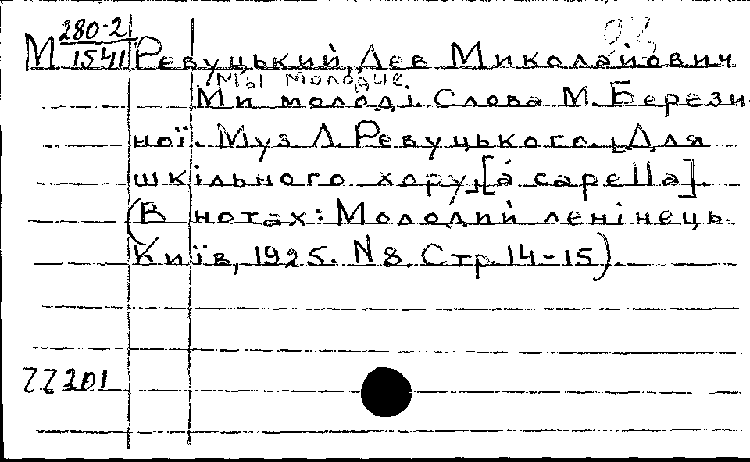 280-2
М 1541 Ревуцький, Лев Миколайович
Мы молодые.
Ми молоді. Слова М. Берези-
ної. Муз Л. Ревуцького. Для
шкільного хору, [a capella].
(В нотах: Молодий ленінець.
Київ, 1925. N 8. Стр. 14-15).
ZZ201